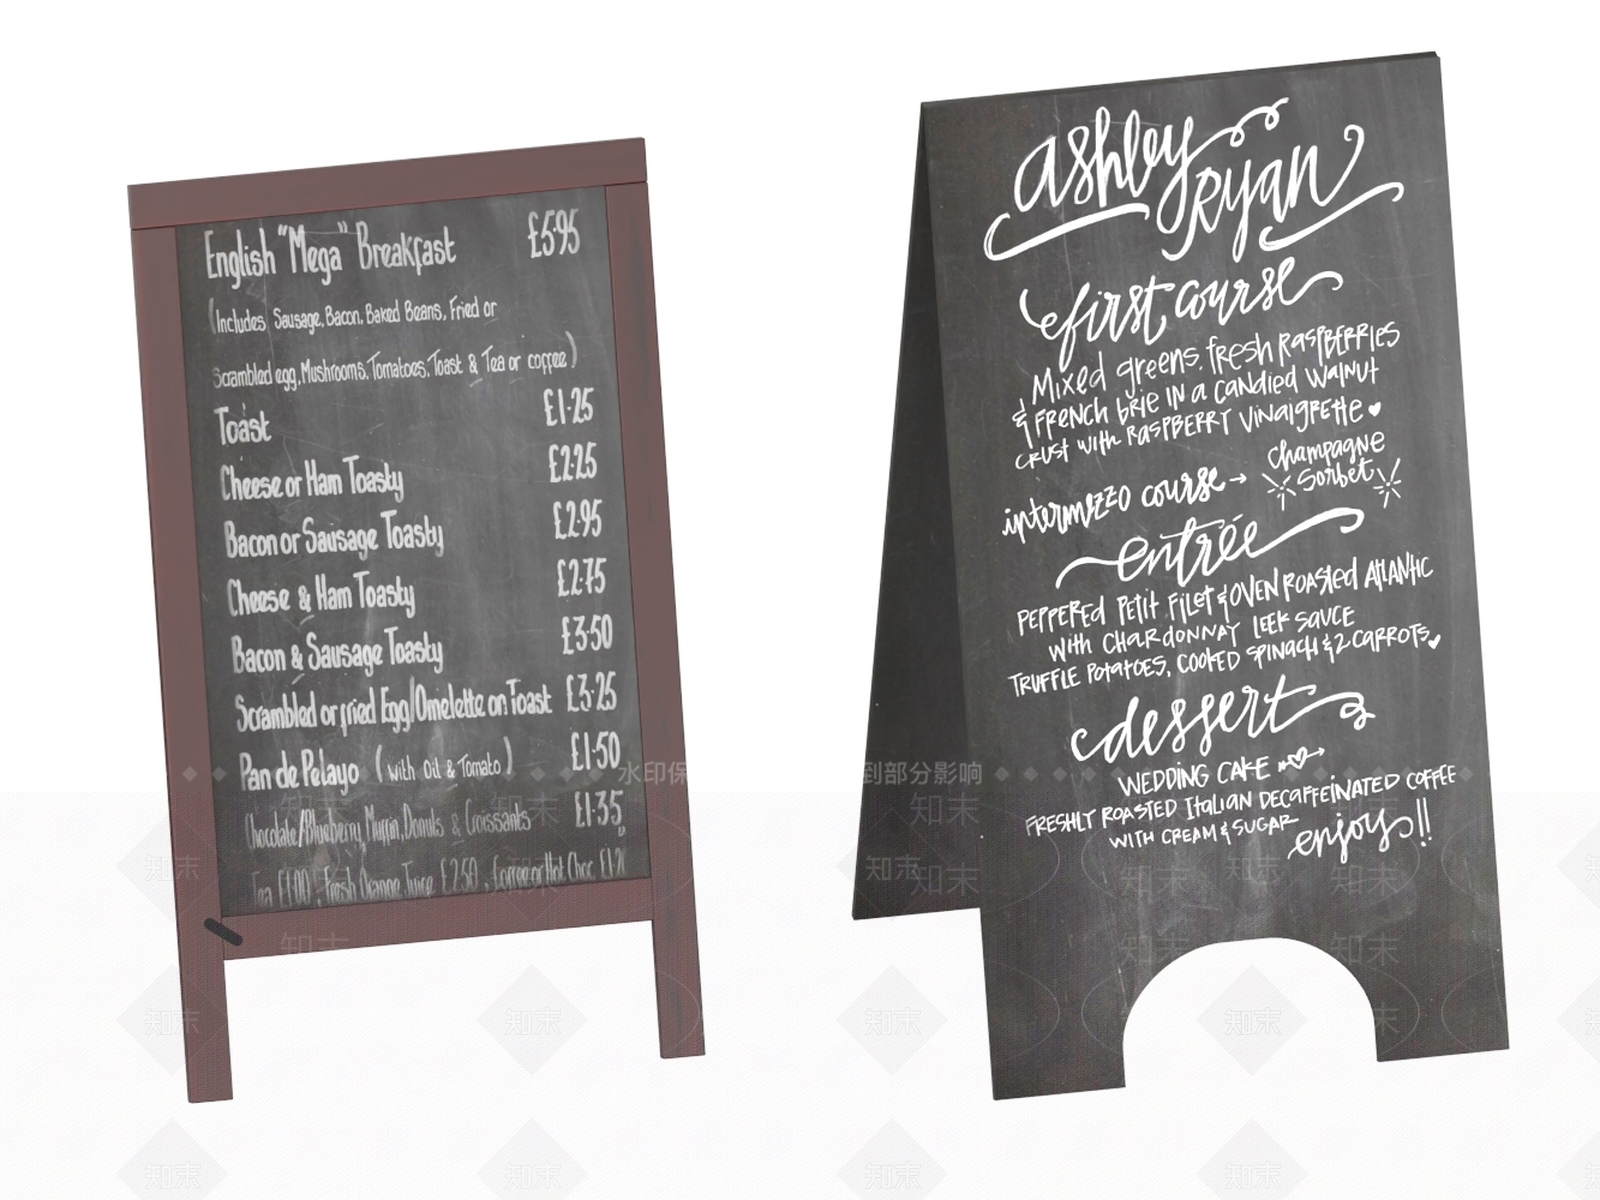 English "Mega" Breakfast £5.95
(Includes Sausage, Bacon, Baked Beans, Fried or
Scrambled egg, Mushrooms, Tomatoes, Toast & Tea or coffee)
Toast £1.25
Cheese or Ham Toasty £2.25
Bacon or Sausage Toasty £2.95
Cheese & Ham Toasty £2.75
Bacon & Sausage Toasty £3.50
Scrambled or fried Egg/Omelette on Toast £3.25
Pan de Pelayo (with Oil & Tomato) £1.50
Chocolate/Blueberry Muffin, Donuts & Croissants £1.35
Tea £1.00, Fresh Orange Juice £2.50, Coffee or Hot Choc. £1.2
ashley
Ryan
first course
Mixed greens, fresh raspberries
& French brie in a candied walnut
crust with raspberry vinaigrette
intermezzo course → Champagne
Sorbet
entrée
Peppered Petit Filet & Oven Roasted Atlantic
with Chardonnay Leek Sauce
Truffle Potatoes, Cooked Spinach & 2 Carrots
dessert
WEDDING CAKE
FRESHLY ROASTED ITALIAN DECAFFEINATED COFFEE
WITH CREAM & SUGAR enjoy!!
水印保
到部分影响
知末